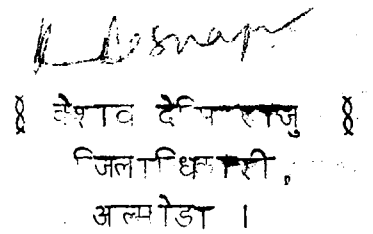 केशव देसिराजु
जिलाधिकारी,
अल्मोडा ।